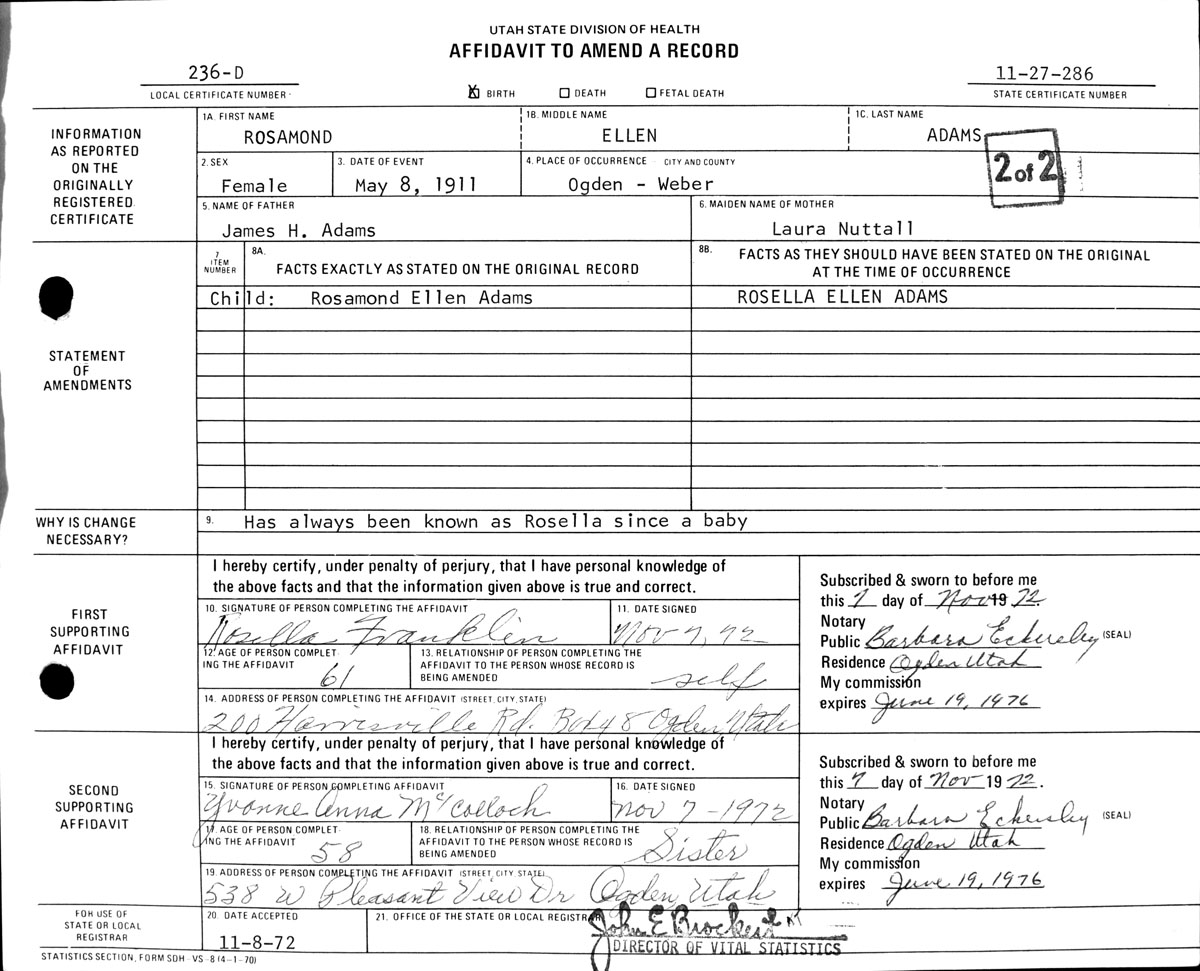 UTAH STATE DIVISION OF HEALTH
AFFIDAVIT TO AMEND A RECORD
236-D
LOCAL CERTIFICATE NUMBER
X BIRTH DEATH FETAL DEATH
11-27-286
STATE CERTIFICATE NUMBER
INFORMATION
AS REPORTED
ON THE
ORIGINALLY
REGISTERED
CERTIFICATE
1A. FIRST NAME
ROSAMOND
1B. MIDDLE NAME
ELLEN
1C. LAST NAME
ADAMS
2 of 2
2. SEX
Female
3. DATE OF EVENT
May 8, 1911
4. PLACE OF OCCURRENCE - CITY AND COUNTY
Ogden - Weber
5. NAME OF FATHER
James H. Adams
6. MAIDEN NAME OF MOTHER
Laura Nuttall
STATEMENT
OF
AMENDMENTS
7
ITEM
NUMBER
8A.
FACTS EXACTLY AS STATED ON THE ORIGINAL RECORD
8B.
FACTS AS THEY SHOULD HAVE BEEN STATED ON THE ORIGINAL
AT THE TIME OF OCCURRENCE
Child: Rosamond Ellen Adams
ROSELLA ELLEN ADAMS
WHY IS CHANGE
NECESSARY?
9. Has always been known as Rosella since a baby
FIRST
SUPPORTING
AFFIDAVIT
I hereby certify, under penalty of perjury, that I have personal knowledge of
the above facts and that the information given above is true and correct.
10. SIGNATURE OF PERSON COMPLETING THE AFFIDAVIT
Rosella Franklin
11. DATE SIGNED
Nov 7, 72
12. AGE OF PERSON COMPLET-
ING THE AFFIDAVIT
61
13. RELATIONSHIP OF PERSON COMPLETING THE
AFFIDAVIT TO THE PERSON WHOSE RECORD IS
BEING AMENDED
self
14. ADDRESS OF PERSON COMPLETING THE AFFIDAVIT (STREET, CITY, STATE)
200 Harrisville Rd. Box 48 Ogden, Utah
Subscribed & sworn to before me
this 7 day of Nov 19 72.
Notary
Public Barbara Eckersley (SEAL)
Residence Ogden Utah
My commission
expires June 19, 1976
SECOND
SUPPORTING
AFFIDAVIT
I hereby certify, under penalty of perjury, that I have personal knowledge of
the above facts and that the information given above is true and correct.
15. SIGNATURE OF PERSON COMPLETING AFFIDAVIT
Yvonne Anna McColloch
16. DATE SIGNED
Nov 7-1972
17. AGE OF PERSON COMPLET-
ING THE AFFIDAVIT
58
18. RELATIONSHIP OF PERSON COMPLETING THE
AFFIDAVIT TO THE PERSON WHOSE RECORD IS
BEING AMENDED
Sister
19. ADDRESS OF PERSON COMPLETING THE AFFIDAVIT (STREET, CITY, STATE)
538 W Pleasant View Dr Ogden Utah
Subscribed & sworn to before me
this 7 day of Nov 19 72.
Notary
Public Barbara Eckersley (SEAL)
Residence Ogden Utah
My commission
expires June 19, 1976
FOR USE OF
STATE OR LOCAL
REGISTRAR
20. DATE ACCEPTED
11-8-72
21. OFFICE OF THE STATE OR LOCAL REGISTRAR
John E Brockert
DIRECTOR OF VITAL STATISTICS
STATISTICS SECTION, FORM SDH-VS-8 (4-1-70)